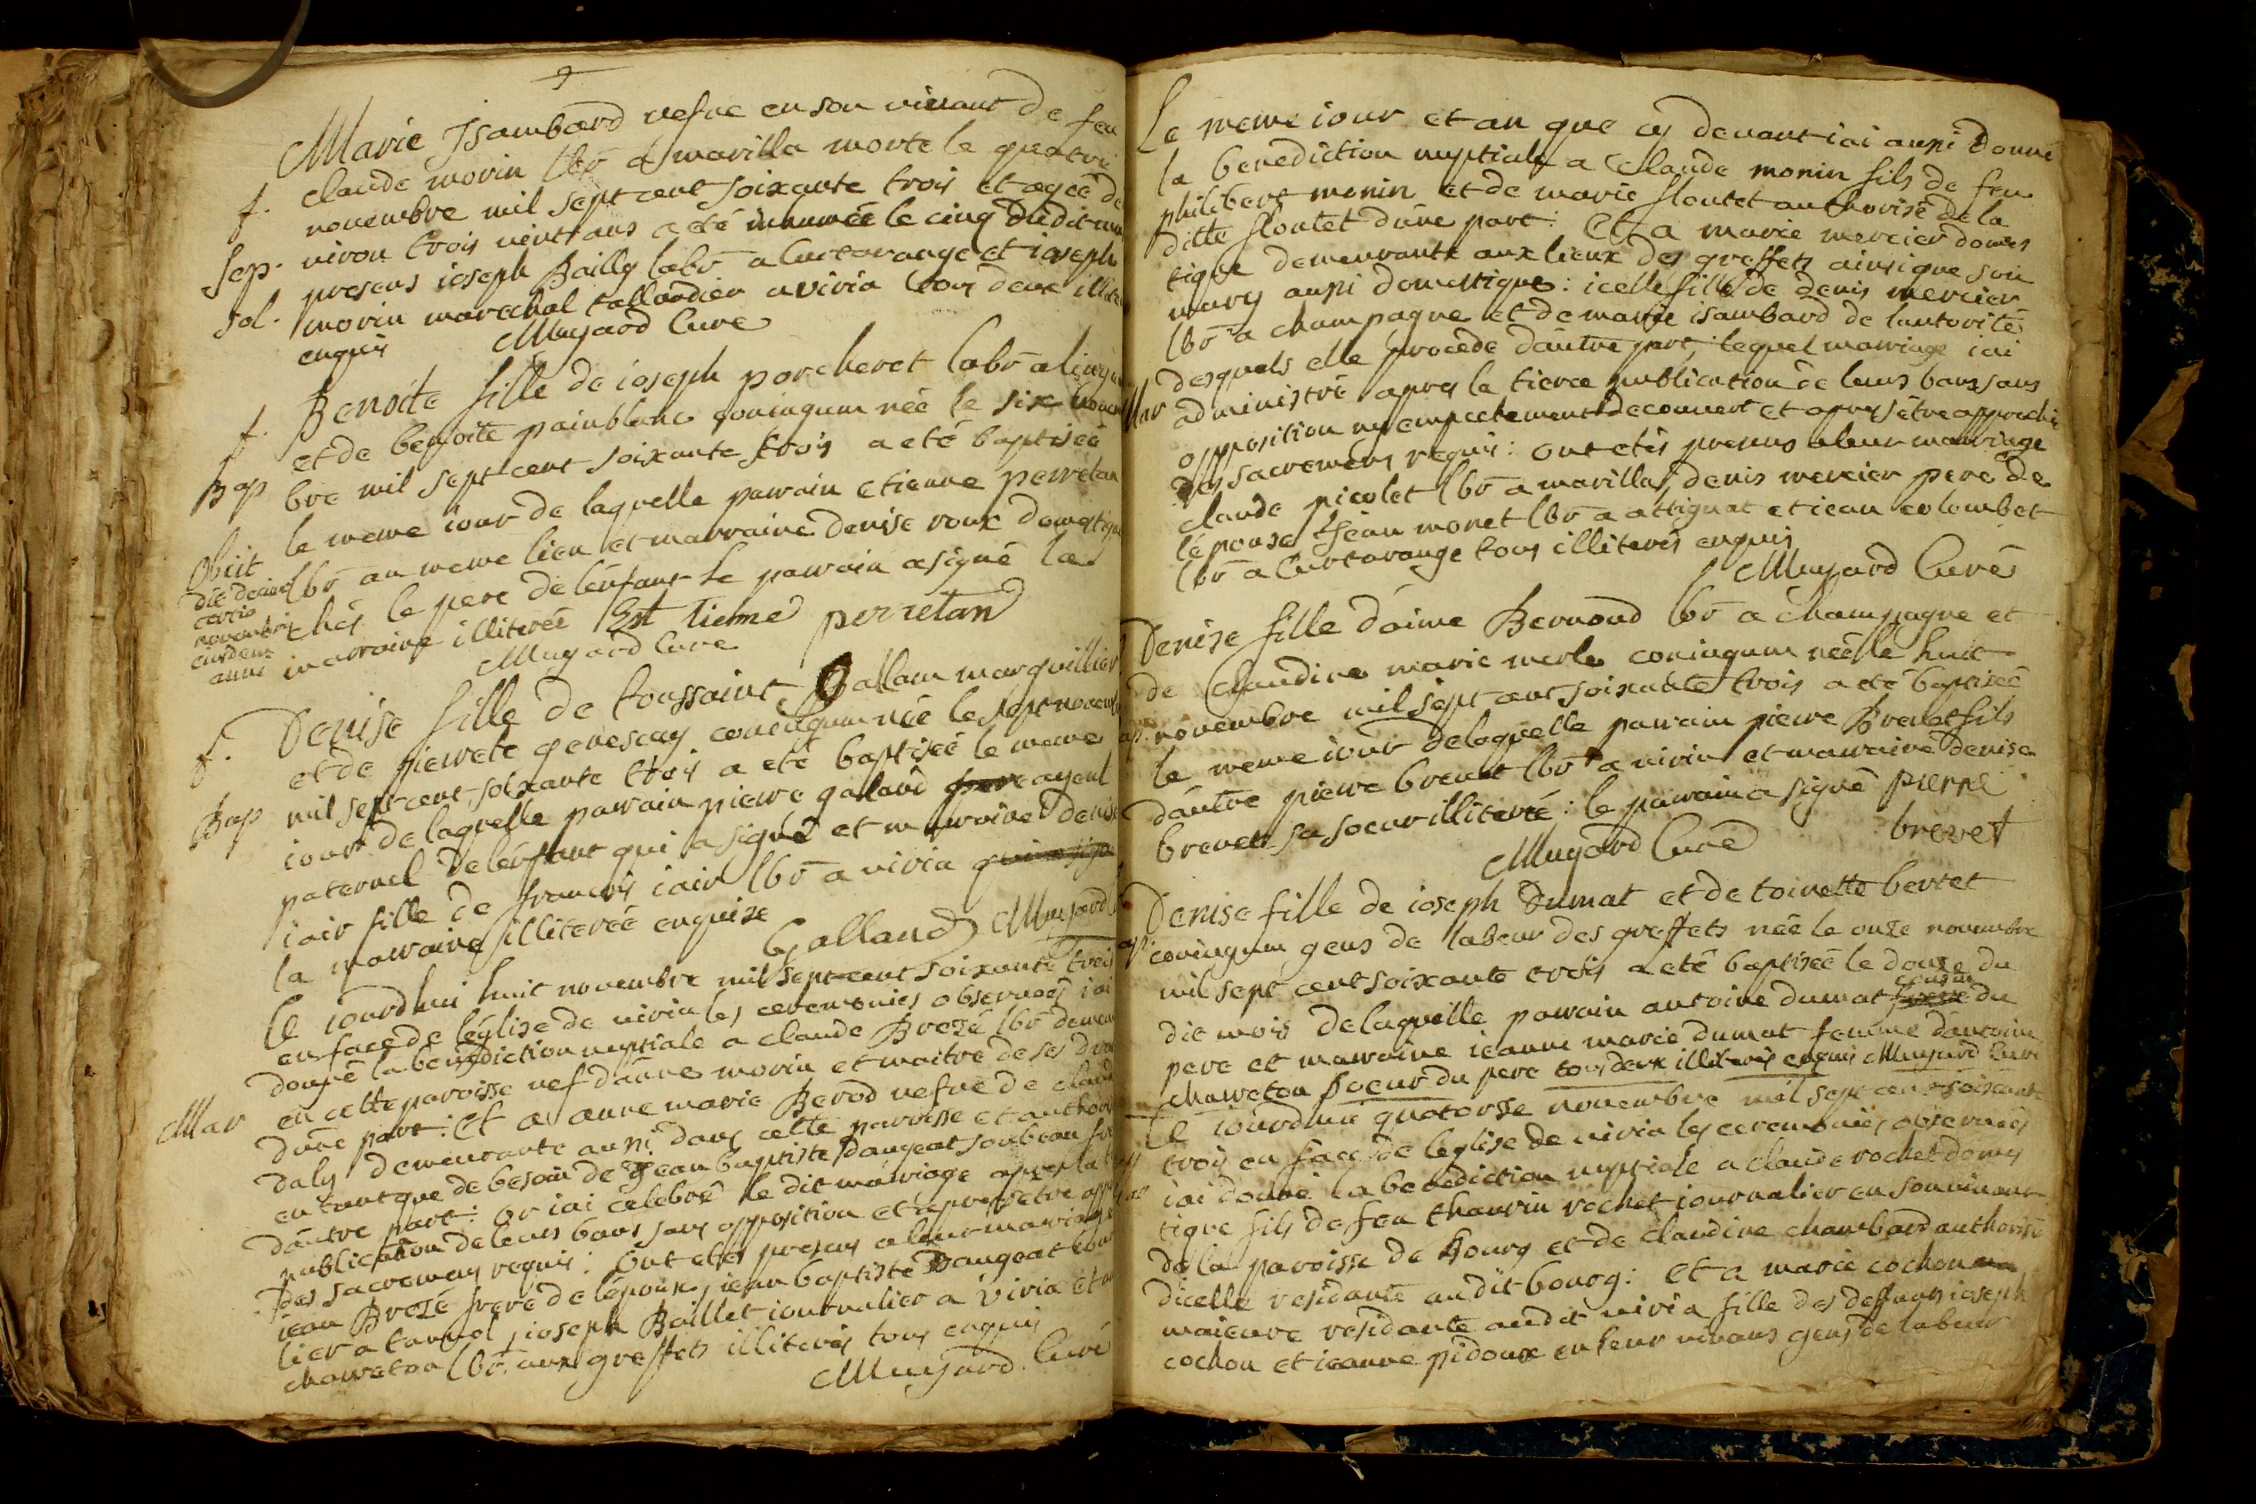 Marie Isambard vefue en son vivant de feu
claude morin lbr a marilla morte le quatri
f. novembre mil sept cent soixante trois et agée de
Sep. viron trois vint ans a eté inhumée le cinq dudit
sol. presens ioseph Bailly labr a Curtarange et ioseph
morin marechal tallandier a viria tous deux
enquis Mugard Curé
f. Benoite fille de ioseph porcheret labr a
et de benoite painblanc coniugum née le six
Bap bre mil sept cent soixante trois a eté baptisée
le meme iour de laquelle parain etienne perretan
Obiit lbr au meme lieu et marraine denise roux domestique
die
novembri chés le pere de lenfant le parain a signé la
eiusdem
anni maraine illiterée Est tieme perretan
Mugard Curé
f. Denise fille de toussaint Gallam marguillier
et de pierrete genescay coniugum née le sept
Bap mil sept cent soixante trois a eté baptisée le meme
iour de laquelle parain pierre galand ayeul
paternel de lenfant qui a signé et maraine denise
iair fille de francois iair lbr a viria
la maraine illiterée enquise
Galland Mugard
Ce iourdhui huit novembre mil sept cent soixante trois
en face de léglise de viria les ceremonies observées iai
donné la benediction nuptiale a claude Brozé lbr
Mar en cette paroisse vef dánne morin et maitre de ses
dune part: Et a anne marie Berod vefve de
daly demeurante aussi dans cette paroisse et
en tant que de besoin de Jean baptiste dangeat son beau
dautre part: Or iai celebré le dit mariage apres la
publication de leurs bans sans opposition et apres setre
des sacremens requis: Ont etés presens a leur mariage
iean Brozé frere de lépoux, iean baptiste Dangeat
lier a tannol ioseph Baillet iournalier a viria et
chareton lbr aux greffets illiterés tous enquis
Mugard Curé
Le meme iour et an que cy devant iai aussi donné
la benediction nuptiale a Claude monin fils de feu
philibert monin et de marie floutet authorisé de la
ditte floutet dune part: Et a marie mercier domes
tique demeurante aux lieux des greffets ainsi que son
mary aussi domestique: icelle fille de denis mercier
lbr a champagne et de marie isambard de lautorité
desquels elle procède dautre part, lequel mariage iai
Mar administré apres la tierce publication de leurs bans sans
opposition ny empechement decouvert et apres sétre approché
des sacremens requis: ont etés presens a leur mariage
claude picolet lbr a marilla, denis mercier pere de
lépouse Jean monet lbr a attignat et iean colombet
lbr a Curtarange tous illiterés enquis
Mugard Curé
Denise fille daime Bernoud lbr a champagne et
de Claudine marie merle coniugum née le huit
novembre mil sept cent soixante trois a eté baptisée
le meme iour de laquelle parain pierre Brevet fils
dautre pierre brevet lbr a viria et maraine denise
brevet sa soeur illiterée: le parain a signé pierre
Mugard Curé brevet
Denise fille de ioseph Dumat et de toinette bertet
coniugum gens de labeur des greffets née le onze novembre
mil sept cent soixante trois a eté baptisée le douze du
dit mois de laquelle parain antoine dumat cousin du
pere et maraine ieanne marie dumat femme dantoine
chareton soeur du pere tous deux illiterés enquis Mugard Curé
Ce iourdhui quatorze novembre mil sept cent soixante
trois en face de léglise de viria les ceremonies observées
iai donné la benediction nuptiale a claude rochet domes
tique fils de feu thaurin rochet iournalier en son vivant
de la paroisse de Bourg et de claudine chambard authorisé
dicelle residante au dit bourg: Et a marie cochon
maieure residante au dit viria fille des deffunts ioseph
cochon et ieanne pidoux en leur vivans gens de labeur